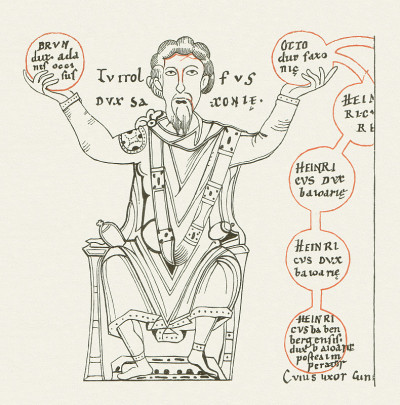 BRVN
dux. adaa
nis ocoi
sus
Lvtrol fvs
DVX SA XONIĘ.
OTTO
dux saxo
nię
HEIN
RIC
RE
HEINRI
CVS DVX
bawarię
HEINRI
CVS DVX
bawarię
HEINRI
CVS baben
bergensis.
dux baioarię
postea im
perator
Cuius uxor Cuni